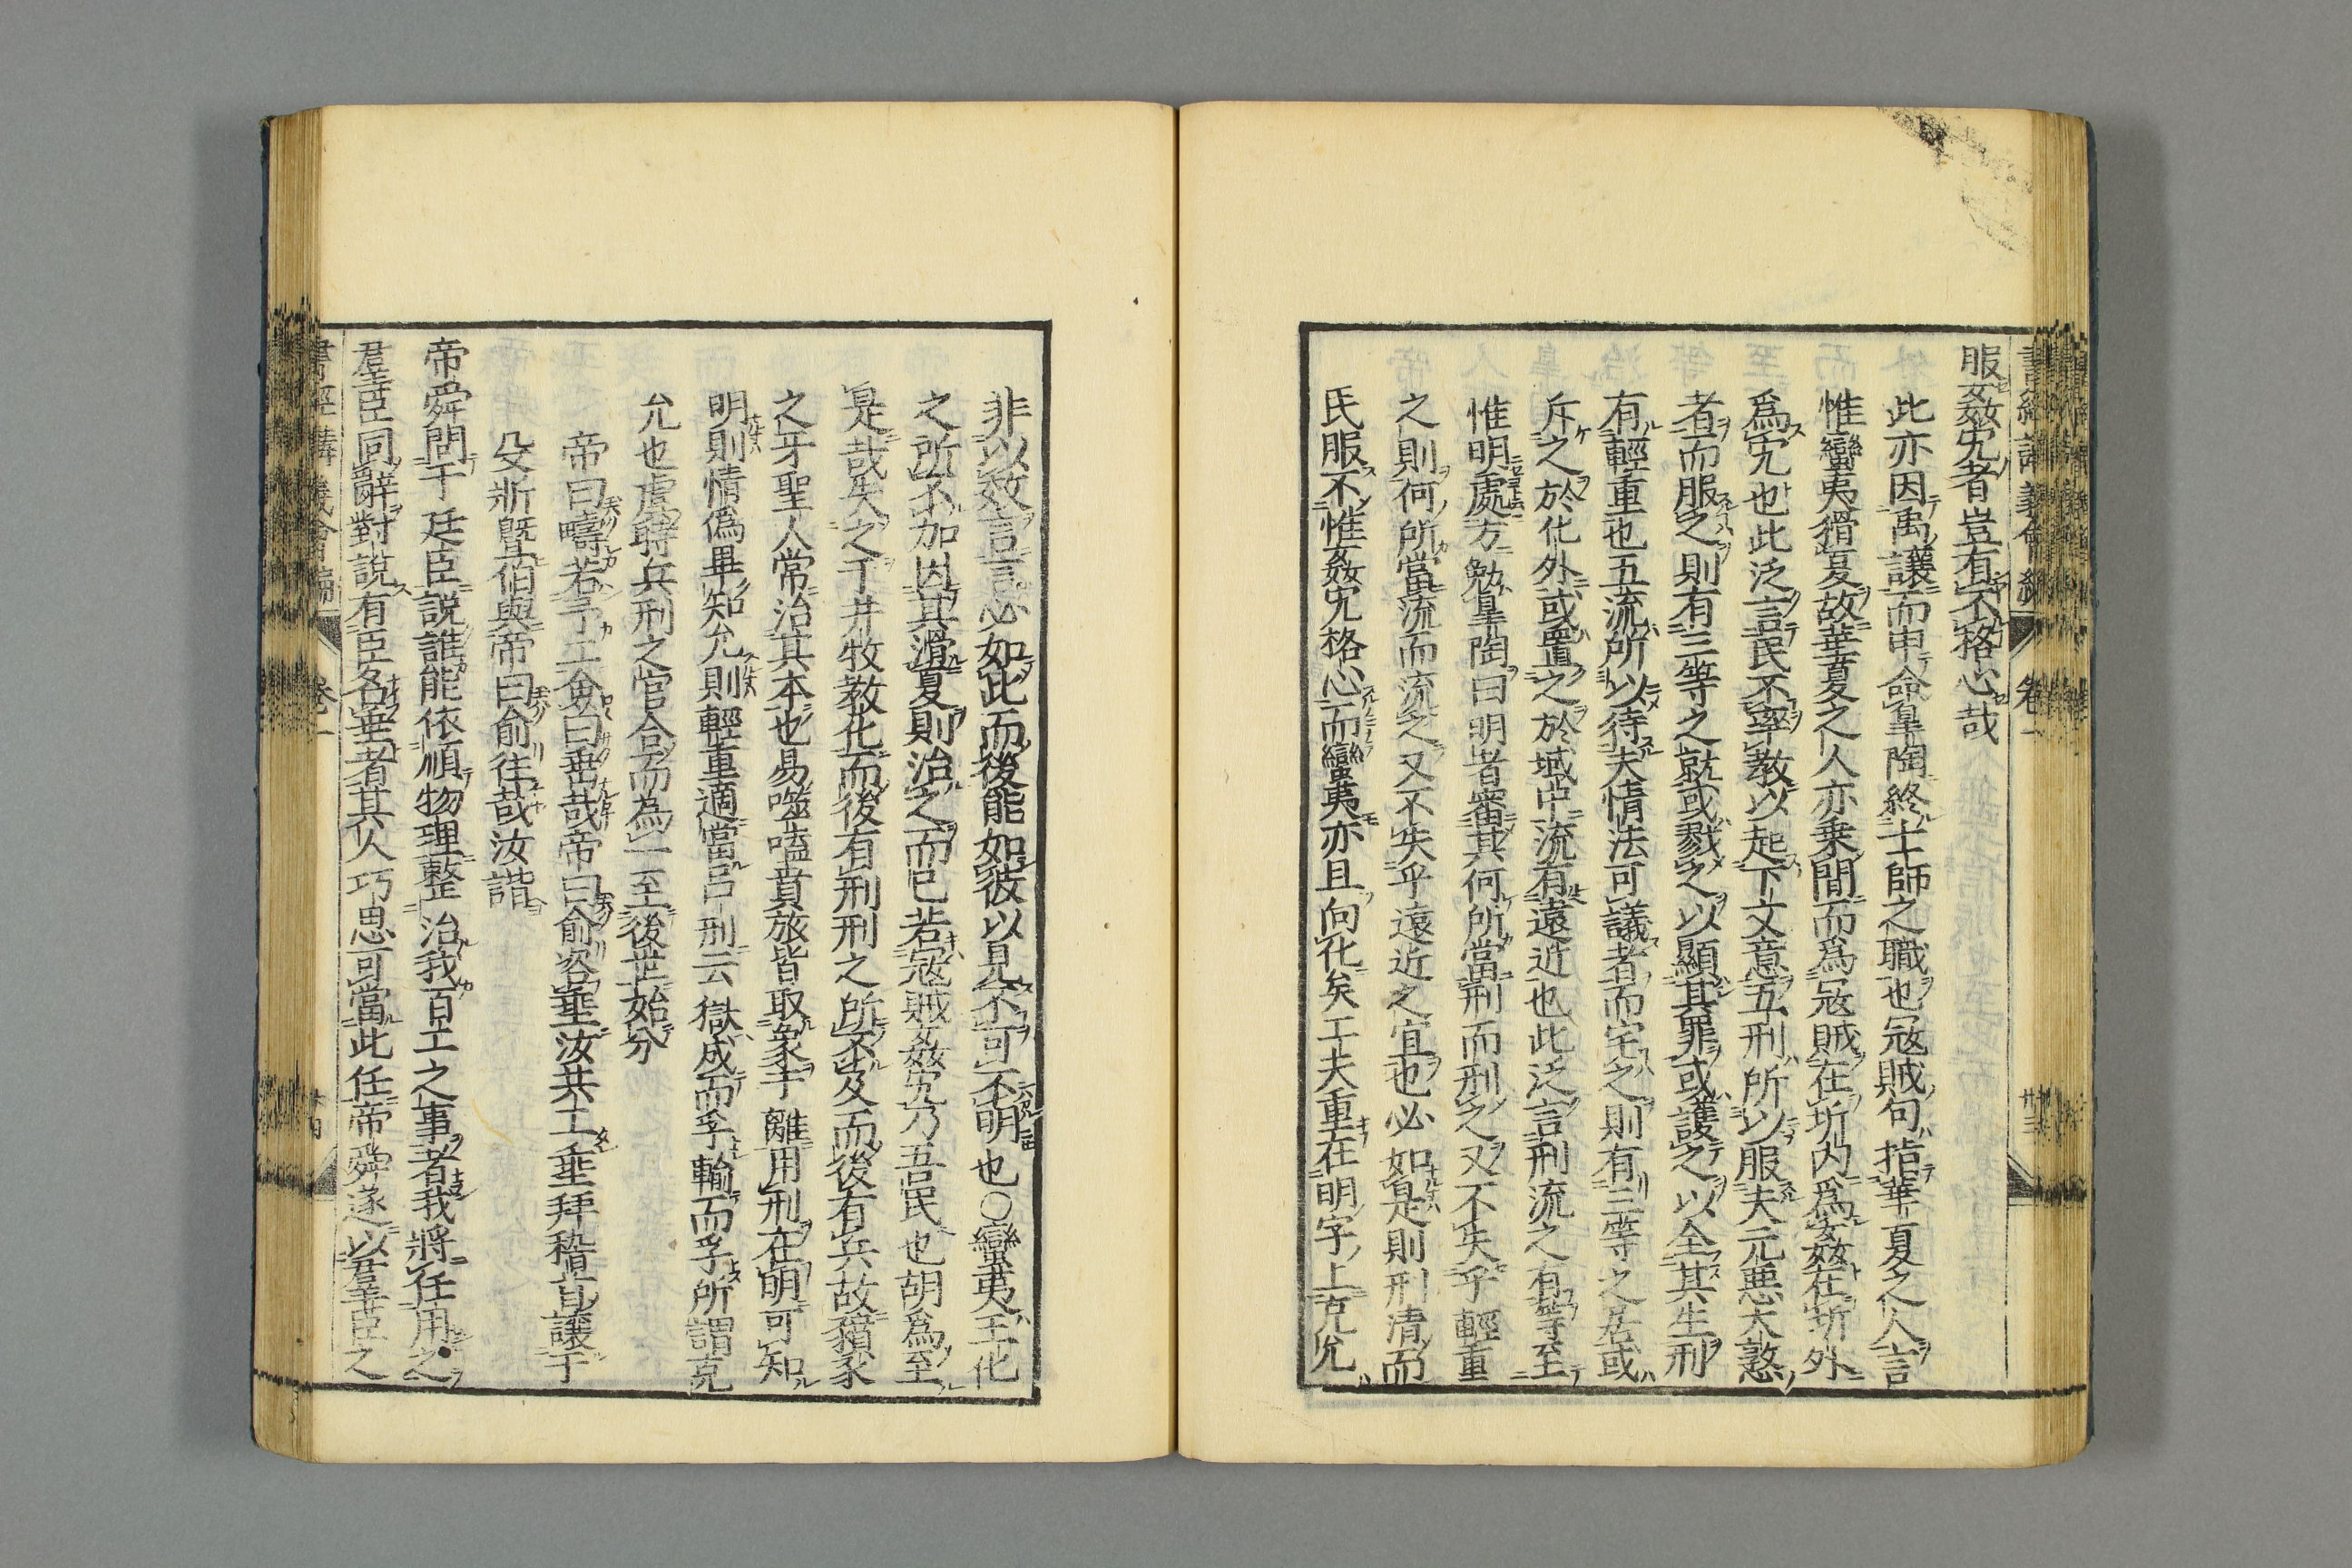 書經講義會編 卷一 廿三
服姦宄者豈有不格心哉
此亦因禹讓而申命皐陶終士師之職也冦賊句指華夏之人言
惟蠻夷猾夏故華夏之人亦乗間而爲冦賊在圻内爲姦在圻外
爲宄也此泛言民不率教以起下文意五刑所以服夫元悪大憝
者而服之則有三等之就或戮之以顯其罪或護之以全其生刑
有輕重也五流所以待夫情法可議者而宅之則有三等之居或
斥之於化外或置之於域中流有遠近也此泛言刑流之有等至
惟明處方勉皐陶曰明者審其何所當刑而刑之又不失乎輕重
之則何所當流而流之又不失乎遠近之宜也必如是則刑清而
民服不惟姦宄格心而蠻夷亦且向化矣工夫重在明字上克允
非以效言言必如此而後能如彼以見不可不明也○蠻夷王化
之所不加因其滑夏則治之而已若冦賊姦宄乃吾民也胡爲至
是哉失之于井牧教化而後有刑刑之所不及而後有兵故豶豕
之牙聖人常治其本也易噬嗑賁旅皆取象于離用刑在明可知
明則情偽畢知允則輕重適當呂刑云獄成而孚輸而孚所謂克
允也虞時兵刑之官合而為一至後世始分
帝曰疇若予工僉曰垂哉帝曰俞咨垂汝共工垂拜稽首讓于
殳斨曁伯與帝曰俞往哉汝諧
帝舜問于廷臣說誰能依順物理整治我百工之事者我將任用之
羣臣同辭對說有臣名垂者其人巧思可當此任帝舜遂以羣臣之
書經講義會編 卷一 廿四